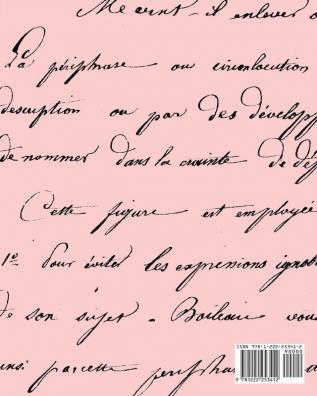 Me vient-il enlever
La périphrase ou circonlocution
description ou par des développ
de nommer dans la crainte de dép
Cette figure est employée
1º Pour éviter les expressions ignob
de son sujet - Boileau vou
insi par cette périphra
ISBN 978-1-222-25341-2
90000
9 781222 253412